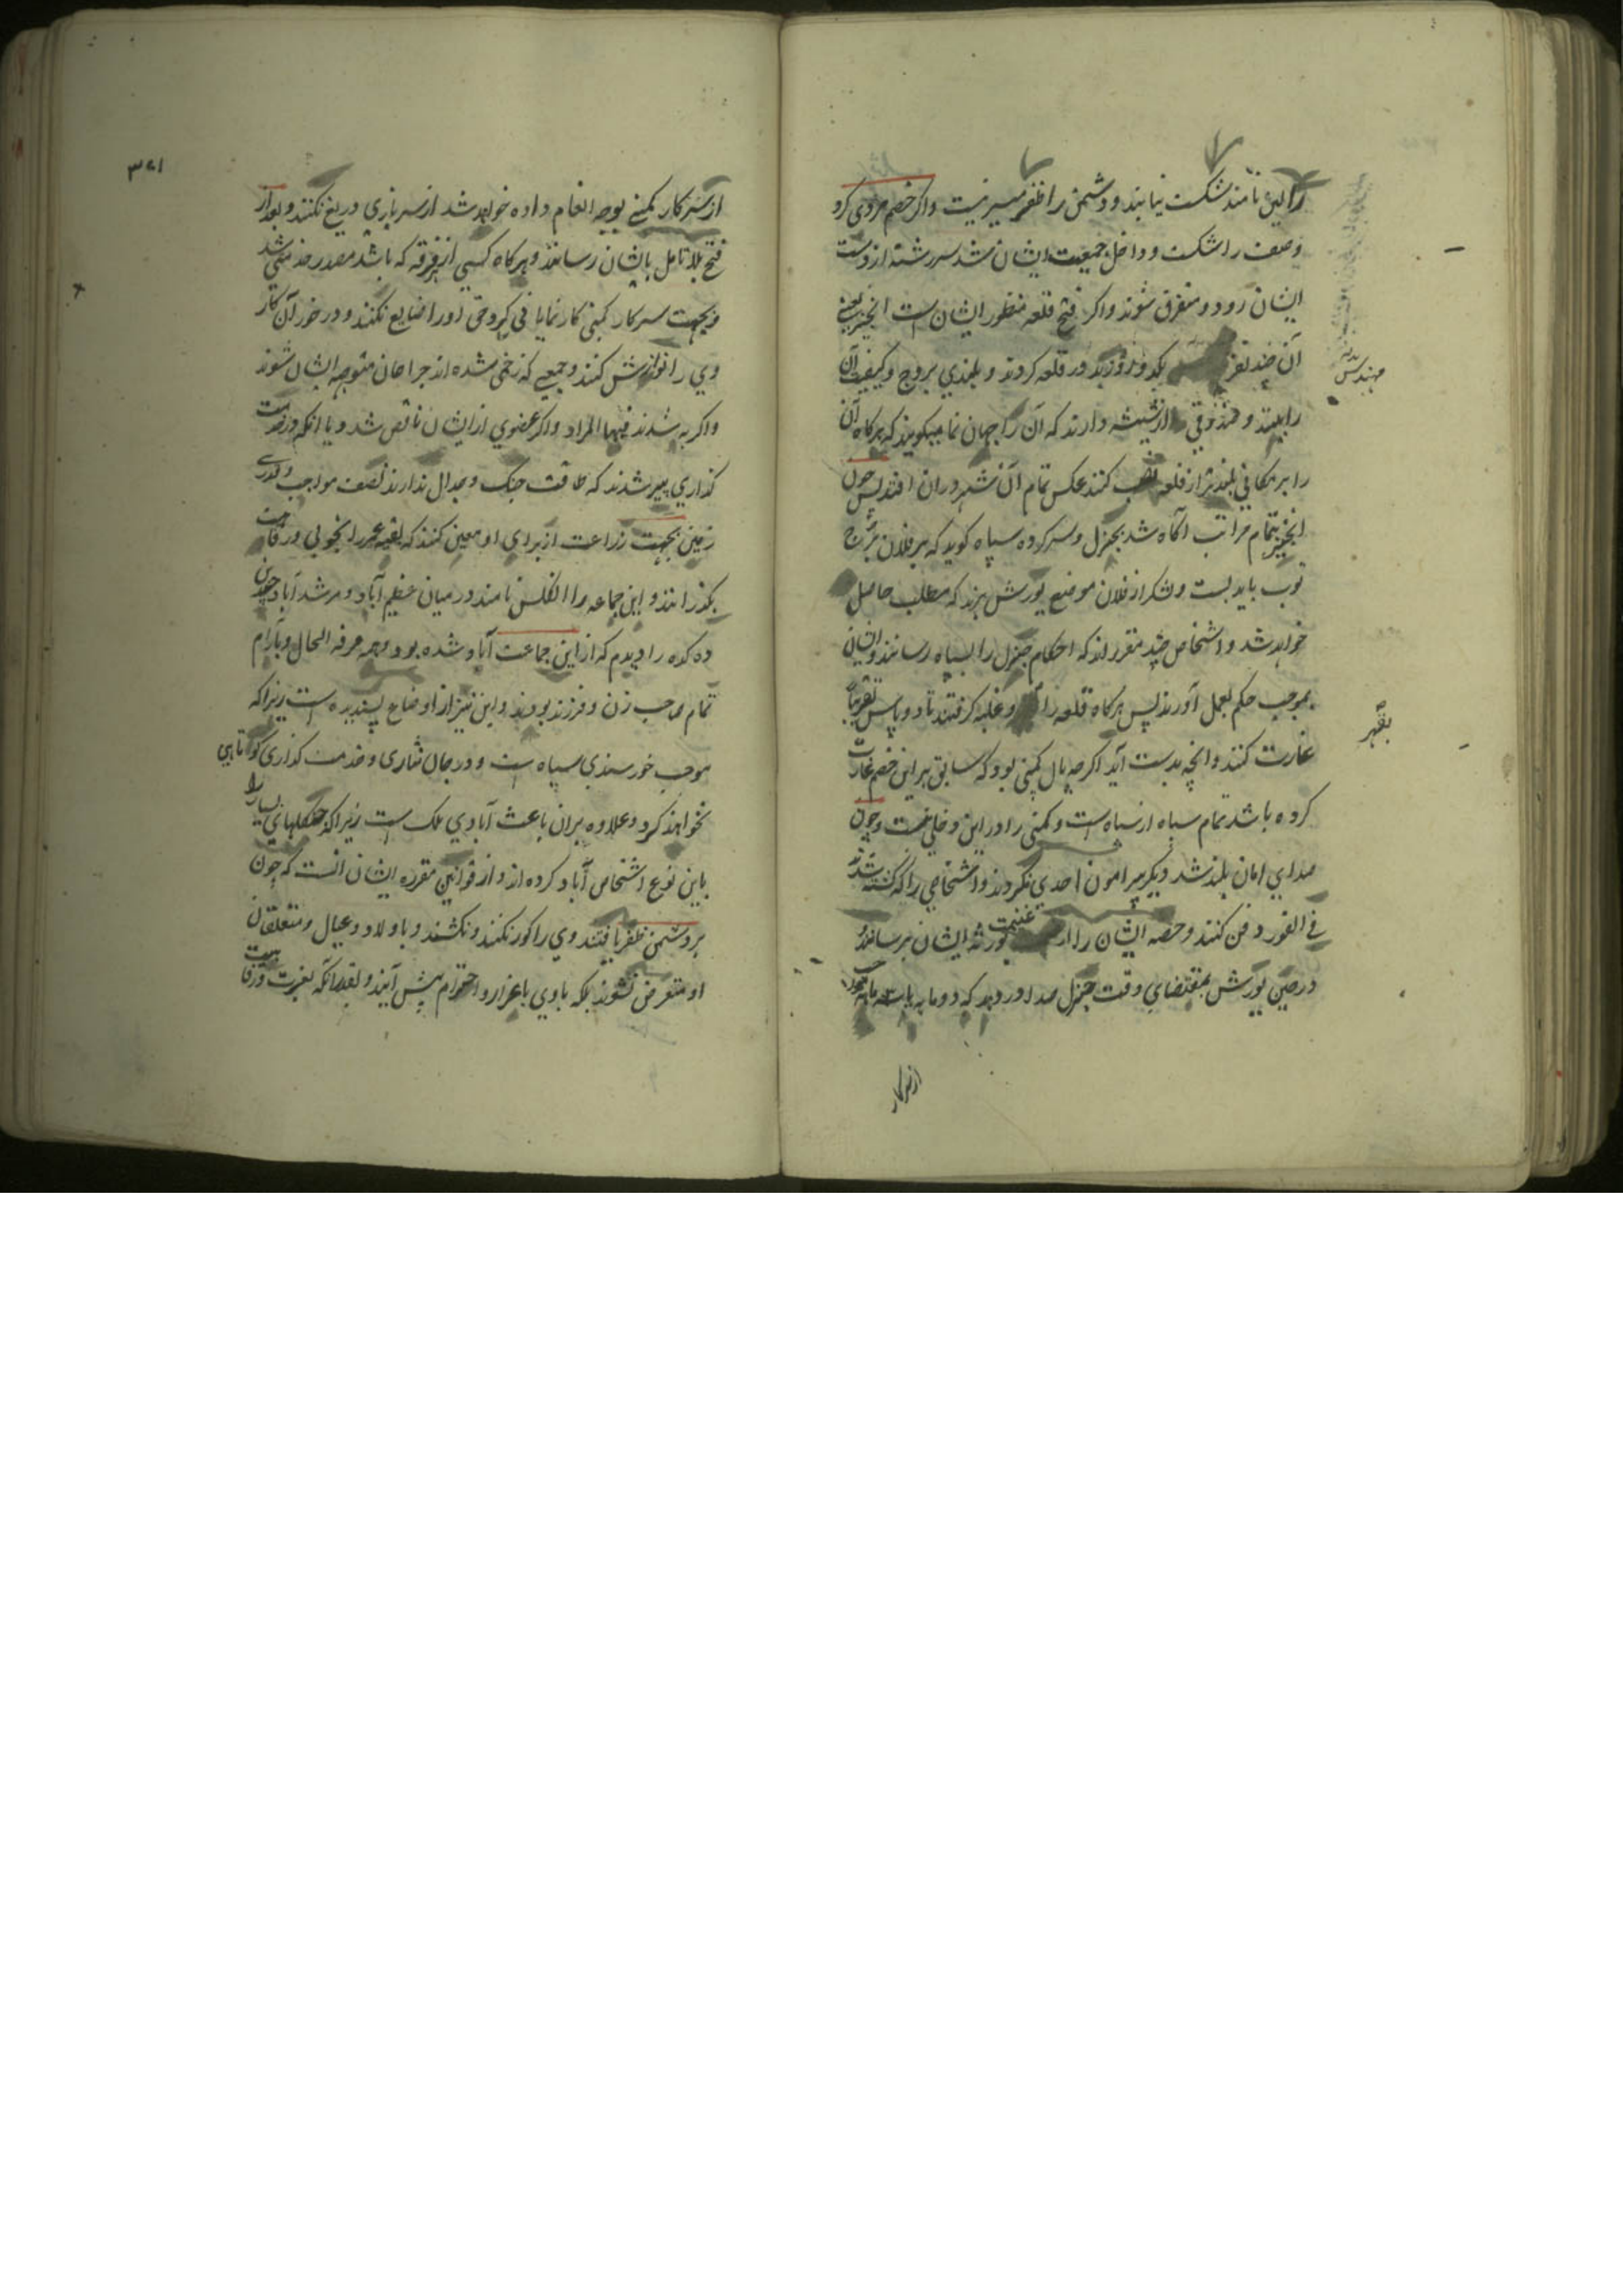 را لین نامند شکست نیابند و دشمن را ظفر میسر نیست و اگر خصم مردی کرد
و صف را شکست و داخل جمعیت ایشان شد سررشته از دست
ایشان رود و متفرق شوند و اگر فتح قلعه منظور ایشان است انجنیر یعنی
آن چند نفر یکدو روز بدور قلعه گردند و بلندی بروج و کیفیت آن
را ببینند و صندوقی از شیشه دارند که آن را جهان نما میگویند که هرگاه آن
را بر مکانی بلندتر از قلعه نصب کنند عکس تمام آن شهر در ان افتد پس چون
انجنیر بتمام مراتب آگاه شد بجنرل و سرکرده سپاه گوید که بر فلان برج
توپ باید بست و لشکر از فلان موضع یورش برند که مطلب حاصل
خواهد شد و اشخاص چند مقررند که احکام جنرل را بسپاه رسانند و ایشان
بموجب حکم بعمل آورند پس هرگاه قلعه را و غلبه گرفتند تا دو پاس تقریباً
غارت کنند و انچه بدست آید اگر چه مال کمپنی بود که سابق بر این خصم غارت
کرده باشد تمام سپاه از سپاه است و کمپنی را در این دخلی نیست و چون
صدای امان بلند شد دیگر پیرامون احدی نگردند و اشخاصی را که کشته شدند
فی الفور دفن کنند و حصه ایشان را از غنیمت بورثه ایشان برسانند
در حین یورش بمقتضای وقت جنرل صدا در دهد که دو ماهه یا سه ماهه
مهندس
بقهر
از سرکار
۳۷۱
از سرکار کمپنی بوجه انعام داده خواهد شد از سربازی دریغ نکنند و بعد از
فتح بلا تامل بایشان رسانند و هرگاه کسی از هر فرقه که باشد مصدر خدمتی شد
و بجهت سرکار کمپنی کار نمایانی کرد حق او را ضایع نکنند و در خور آن کار
وی را نوازش کنند و جمعی که زخمی شده اند جراحان متوجه ایشان شوند
و اگر به شدند فبها المراد و اگر عضوی از ایشان ناقص شد و یا انکه در خدمت
گذاری پیر شدند که طاقت جنگ و جدال ندارند نصف مواجب و قدری
زمین بجهت زراعت از برای او معین کنند که بقیه عمر را بخوبی و رفاهیت
بگذرانند و این جماعه را انگلس نامند در میان عظیم آباد و مرشد آباد چندین
ده کده را دیدم که از این جماعت آباد شده بود و همه مرفه الحال و بآرام
تمام صاحب زن و فرزند بودند و این نیز از اوضاع پسندیده است زیرا که
موجب خورسندی سپاه است و در جان نثاری و خدمت گذاری کوتاهی
نخواهند کرد و علاوه بران باعث آبادی ملک است زیرا که جنگلهای بسیار را
باین نوع اشخاص آباد کرده اند و از قوانین مقرره ایشان انست که چون
بر دشمن ظفر یافتند وی را کور نکنند و نکشند و با ولاد و عیال و متعلقان
او متعرض نشوند بلکه با وی باعزاز و احترام پیش آیند و بقدرانکه بعزت و رفاهیت